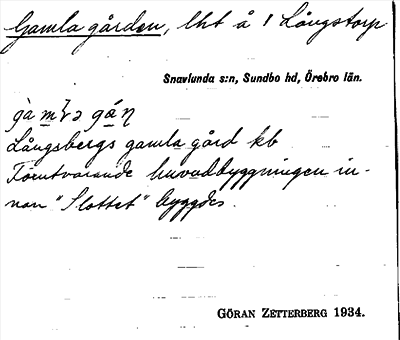 Gamla gården, lht å 1 Långstorp
Snavlunda s:n, Sundbo hd, Örebro län.
Långsbergs gamla gård kb
Förutvarande huvudbyggningen in-
nan "Slottet" byggdes.
GÖRAN ZETTERBERG 1934.